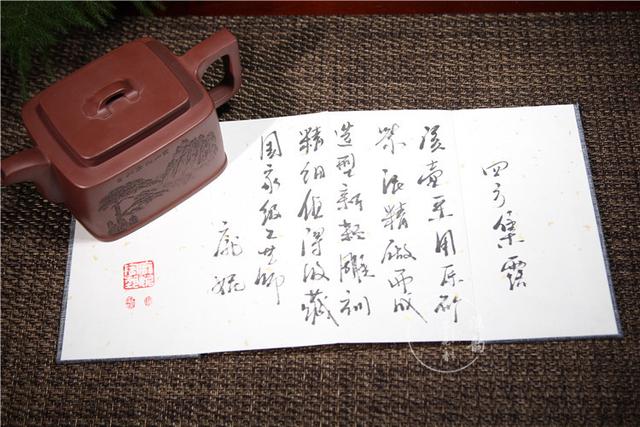 四方集露
该壶采用原矿
紫泥精做而成
造型新颖雕刻
精细值得收藏
国家级工艺师
庞